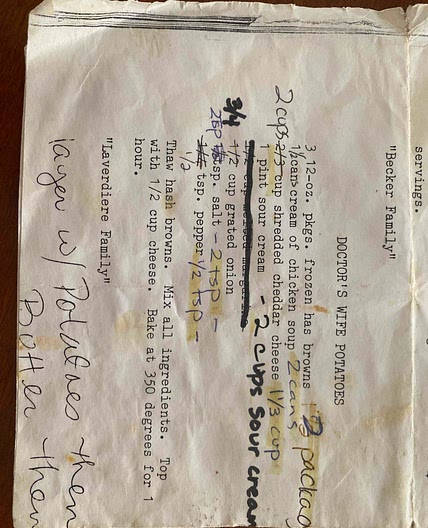 servings.
"Becker Family"
DOCTOR'S WIFE POTATOES
3 12-oz. pkgs. frozen has browns packag
1/2 cans cream of chicken soup 2 cans
2 cups 2/3 cup shredded cheddar cheese 1 1/3 cup
1 pint sour cream - 2 cups sour cream
1/2 cup melted margarine
3/4 1/2 cup grated onion
2 tsp tsp. salt - 2 tsp -
1/2 tsp. pepper 1/2 tsp -
Thaw hash browns. Mix all ingredients. Top
with 1/2 cup cheese. Bake at 350 degrees for 1
hour.
"Laverdiere Family"
layer w/ Potatoes then
Butter then